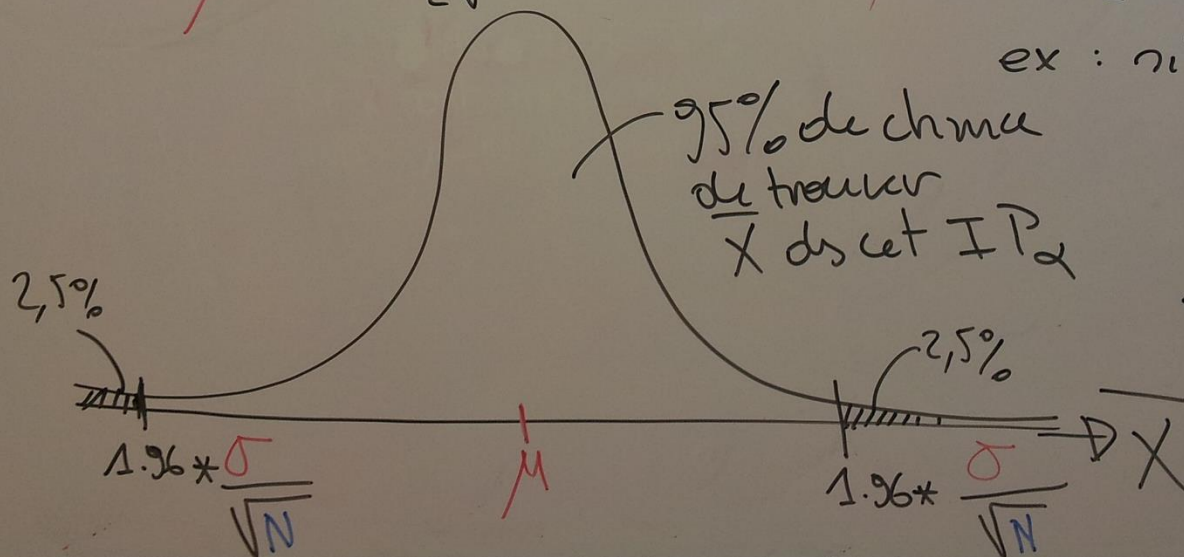 ex :
95% de chance
de trouver
X̅ ds cet IPα
2,5%
2,5%
1.96* σ/√N
μ
1.96* σ/√N
X̅